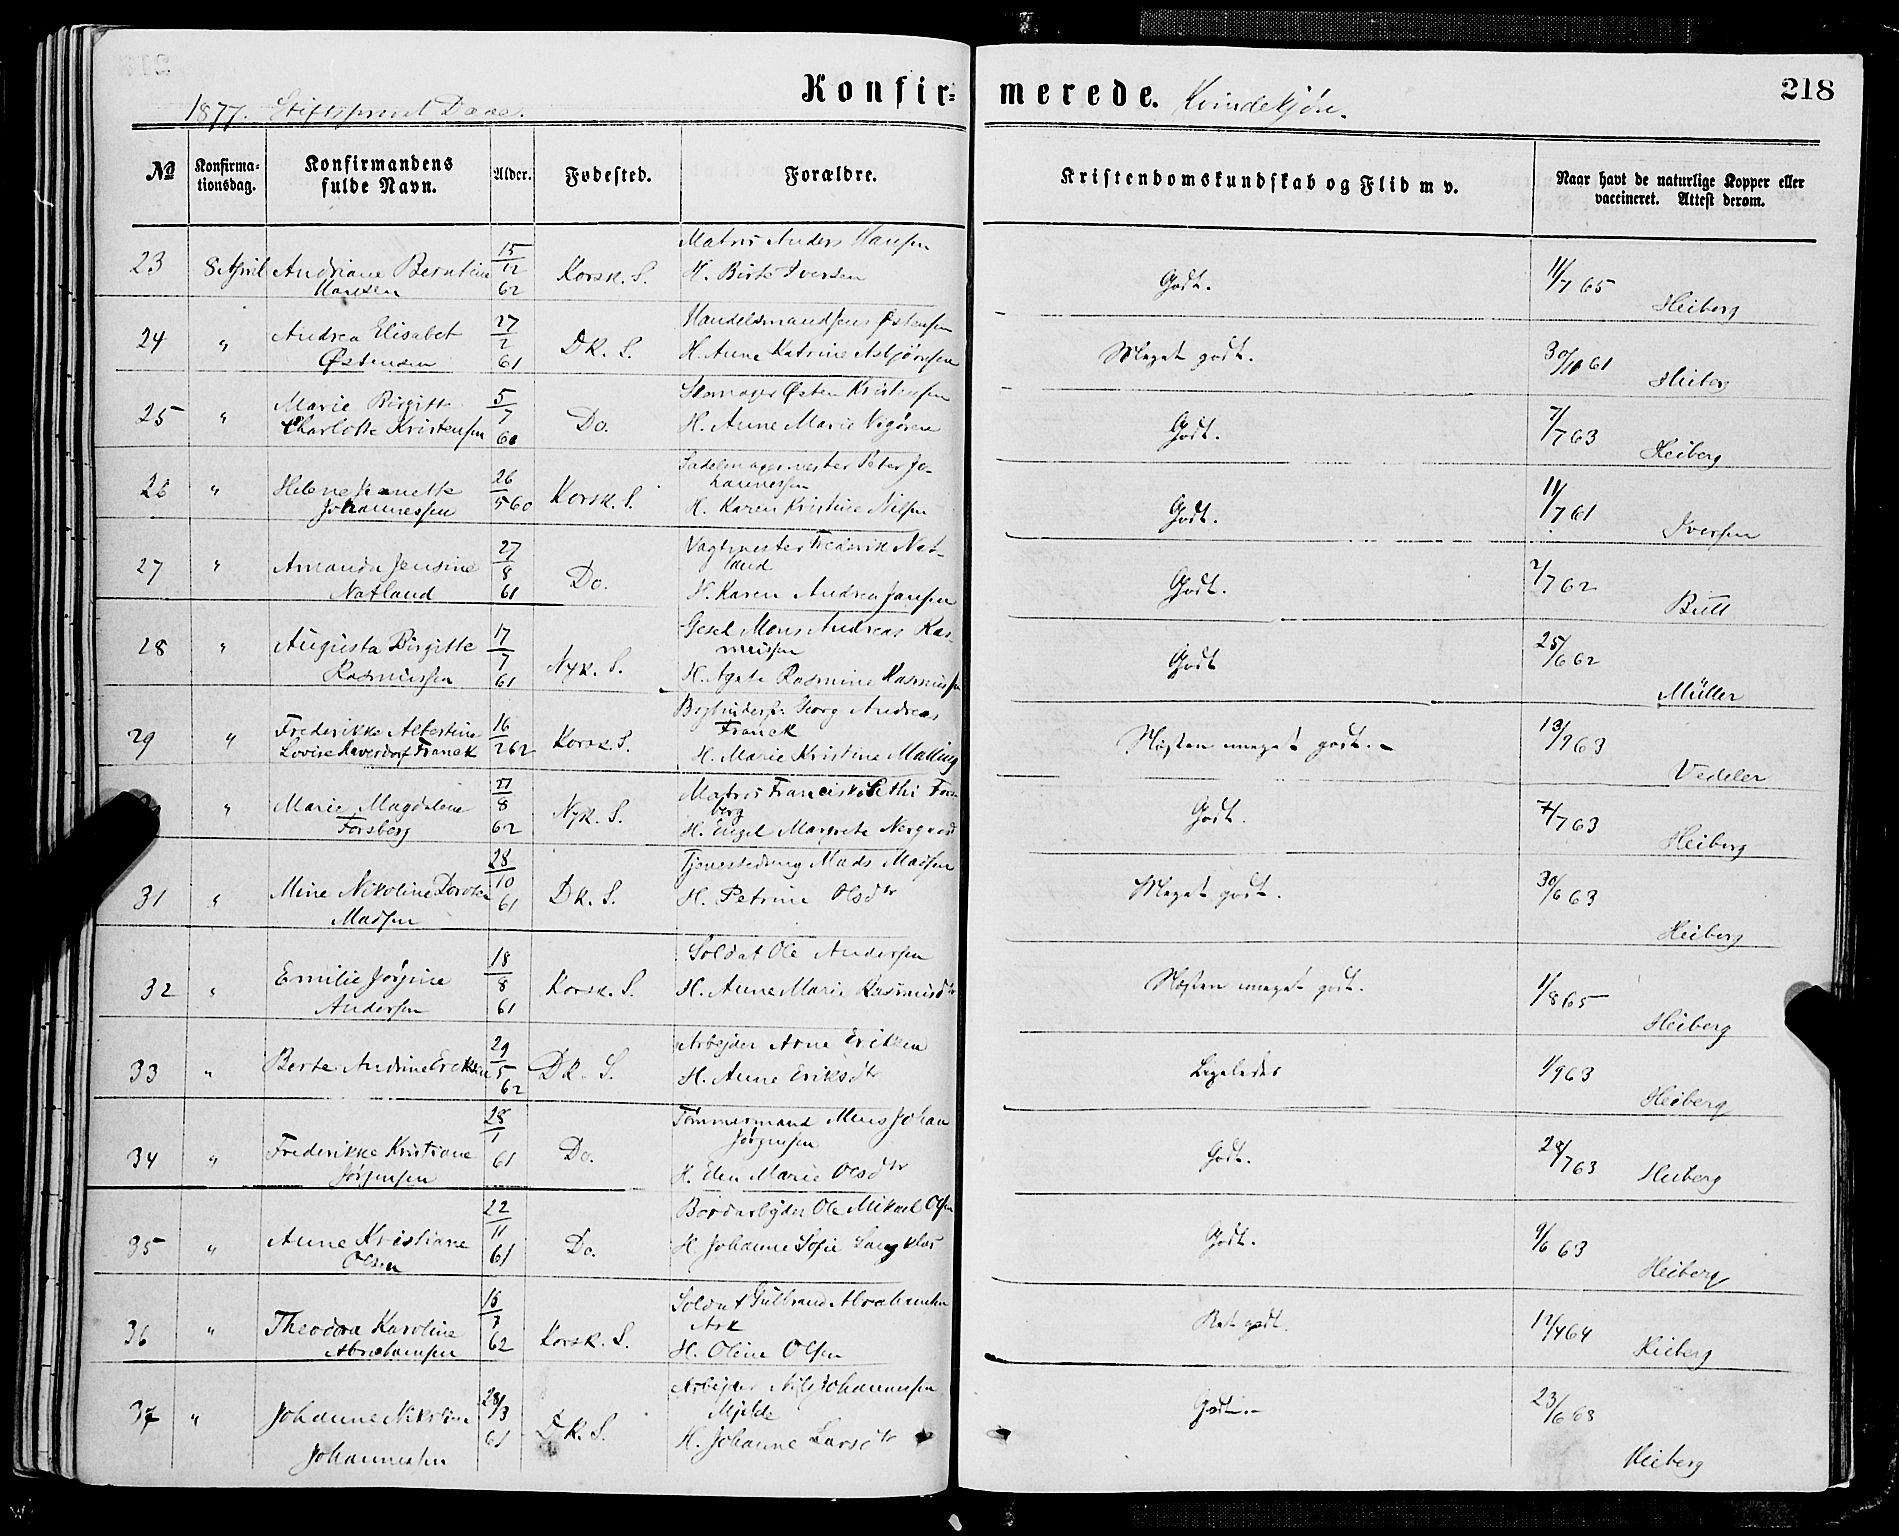 Konfir=merede. Kvindekjøn.
218
1877. Stiftsprovst Daae.
№ Konfirma=tionsdag. Konfirmandens fulde Navn. Alder. Fødested. Forældre. Kristendomskundskab og Flid m v. Naar havt de naturlige Kopper eller vaccineret. Attest derom.
Matros Anders Hansen
23 8 April Andriane Berntine 15/12 62 Korsk. S. H. Berte Iversen Godt. 11/7 65
Hansen Heiberg
Handelsmand Jens Østensen
24 " Andrea Elisabet 27/2 61 DK. S. H. Anne Katrine Asbjørnsen Meget godt. 61
Østensen Heiberg
Skomager Østen Kristensen
25 " Marie Birgitte 5/7 60 Do. H. Anne Marie Godt. 7/7 63
Charlotte Kristensen Heiberg
Sadelmagermester Peter Jo-
hannessen
26 " Helene 26/5 60 Korsk. S. H. Karen Kristine Nilsen Godt. 11/7 61
Johannessen Iversen
Vagtmester Frederik Nat-
land
27 " Amanda Jensine 27/8 61 Do. H. Karen Andrea Jansen Godt. 2/7 62
Natland Bull
Gesel Mons Andreas Ras-
mussen
28 " Augusta Birgitte 17/7 61 Nyk. S. H. Agate Rasmine Rasmussen Godt 25/6 62
Rasmussen Müller
Georg Andreas
Franck
29 " Frederikke Albertine 16/2 62 Korsk. S. H. Marie Kristine Malling Næsten meget godt. 13/9 63
Lovise Franck Vedeler
Matros Forsberg
" Marie Magdalene 27/8 62 Nyk. S. H. Engel Margrete Godt. 7/7 63
Forsberg Heiberg
Tjenestedreng Mads Madsen
31 " Mine Nikoline Dorotea 28/10 61 DK. S. H. Petrine Olsdtr Meget godt. 30/6 63
Madsen Heiberg
Soldat Ole Andersen
32 " Emilie Jørgine 18/8 61 Korsk. S. H. Anne Marie Rasmusdtr Næsten meget godt. 1/8 65
Andersen Heiberg
Arbejder Arne Eriksen
33 " Berte Andrine Eriksen 29/5 62 DK. S. H. Anne Eriksdtr Ligeledes 1/9 63
Heiberg
Tømmermand Mons Johan
Jørgensen
34 " Frederikke Kristiane 28/1 61 Do. H. Elen Marie Olsdtr Godt. 28/7 63
Jørgensen Heiberg
Bordarbejder Ole Mikael Olsen
35 " Anne Kristiane 22/11 61 Do. H. Johanne Sofie Godt. 9/6 63
Olsen Heiberg
Soldat Gulbrand Abrahamsen
Ask
36 " Theodora Karoline 16/7 62 Korsk. S. H. Oline Olsen Ret godt. 12/4 64
Abrahamsen Heiberg
Arbejder Nils Johannessen
Mjelde
37 " Johanne Nikoline 28/3 61 DK. S. H. Johanne Larsdtr Godt. 23/6 63
Johannessen Heiberg